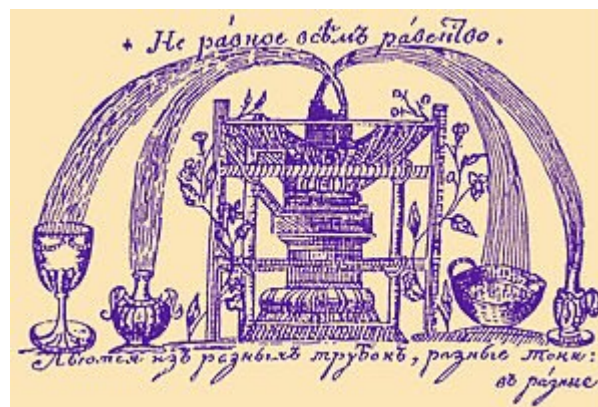 + Не ра́вное всѣмъ ра́венство.
Льются изъ разныхъ трубокъ, разные токи:
въ ра́зные